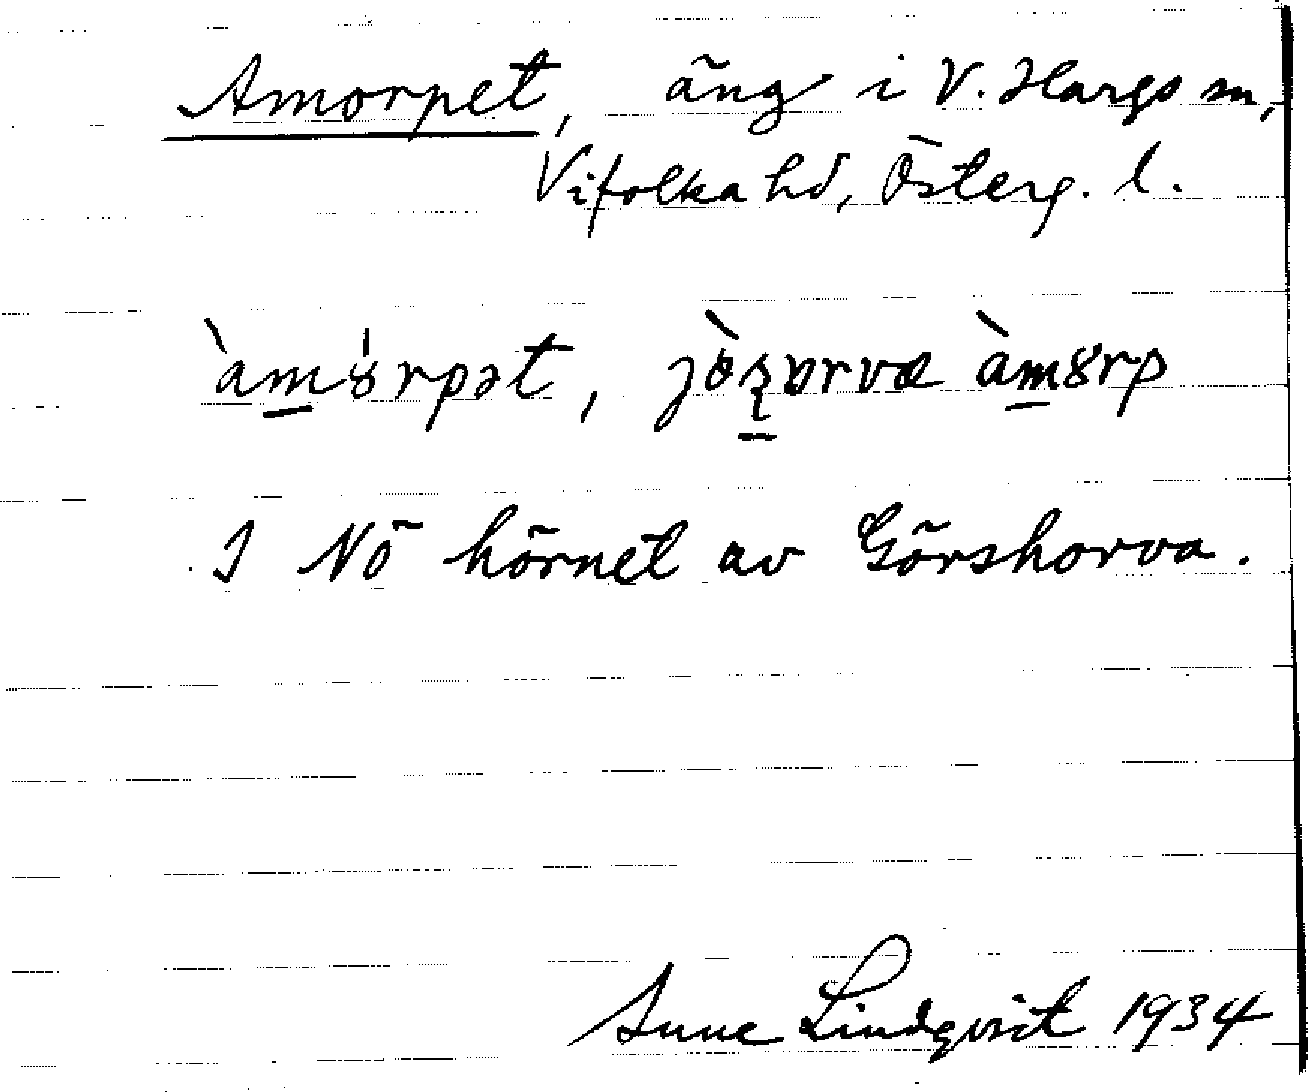 Amorpet, äng i V. Hargs sn,
Vifolka hd, Österg. l.
àmȣ́rpət, jòʂɐrvæ àmȣrp
I NÖ hörnet av Görshorva.
Sune Lindqvist 1934